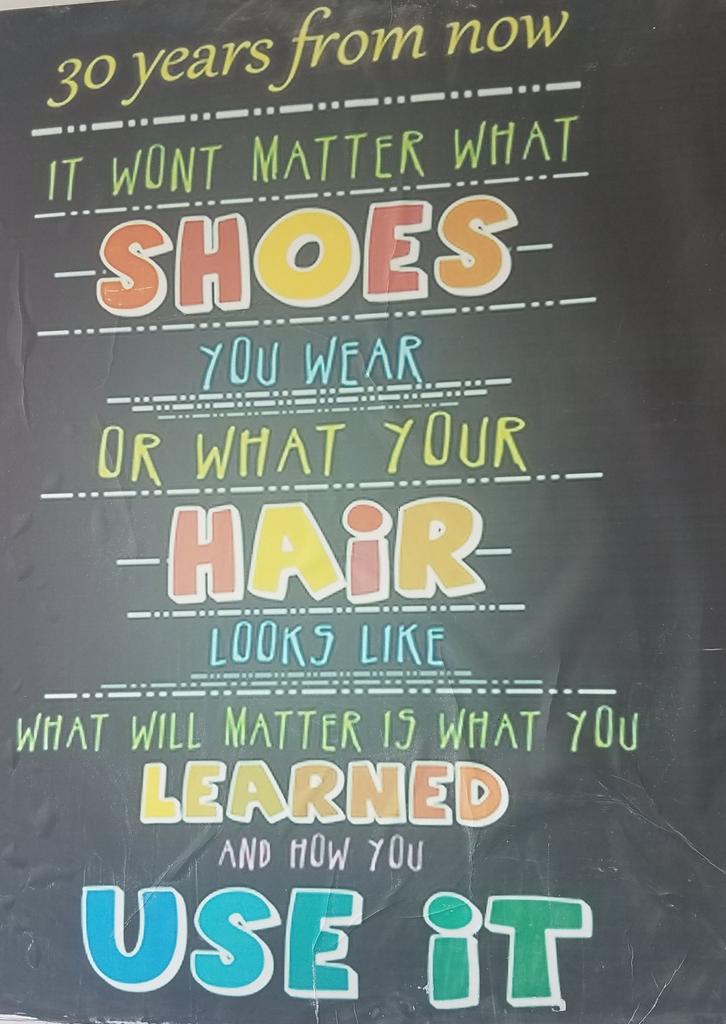 30 years from now
IT WONT MATTER WHAT
SHOES
YOU WEAR
OR WHAT YOUR
HAiR
LOOKS LIKE
WHAT WILL MATTER IS WHAT YOU
LEARNED
AND HOW YOU
USE iT